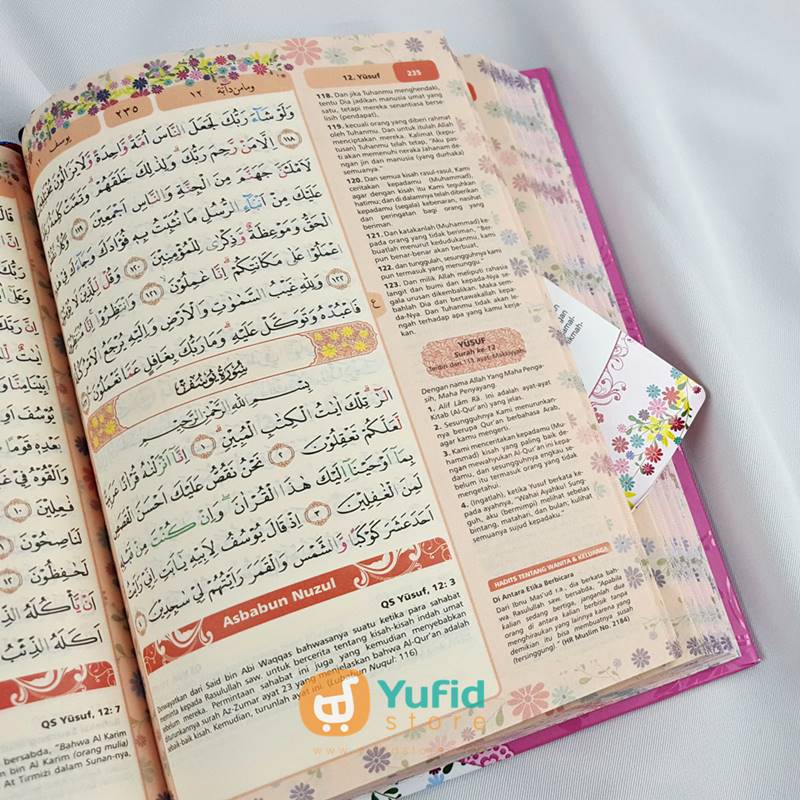 يوسف ١٢
٢٣٥
١٢
ومامن دآبة
وَلَوْ شَآءَ رَبُّكَ لَجَعَلَ النَّاسَ اُمَّةً وَّاحِدَةً وَّلَا يَزَالُوْنَ
اِلَّا مَنْ رَّحِمَ رَبُّكَ ۗوَلِذٰلِكَ خَلَقَهُمْ ۗوَتَمَّتْ كَلِمَةُ
لَاَمْلَـَٔنَّ جَهَنَّمَ مِنَ الْجِنَّةِ وَالنَّاسِ اَجْمَعِيْنَ ١١٩ وَكُلًّا
عَلَيْكَ مِنْ اَنْۢبَآءِ الرُّسُلِ مَا نُثَبِّتُ بِهٖ فُؤَادَكَ وَجَآءَكَ فِيْ
الْحَقُّ وَمَوْعِظَةٌ وَّذِكْرٰى لِلْمُؤْمِنِيْنَ ١٢٠ وَقُلْ لِّلَّذِيْنَ
اعْمَلُوْا عَلٰى مَكَانَتِكُمْۗ اِنَّا عٰمِلُوْنَ ١٢١ وَانْتَظِرُوْاۚ اِنَّا
١٢٢ وَلِلّٰهِ غَيْبُ السَّمٰوٰتِ وَالْاَرْضِ وَاِلَيْهِ يُرْجَعُ الْاَمْرُ
فَاعْبُدْهُ وَتَوَكَّلْ عَلَيْهِ ۗوَمَا رَبُّكَ بِغَافِلٍ عَمَّا تَعْمَلُوْنَ
سُوْرَةُ يُوْسُفَ
بِسْمِ اللّٰهِ الرَّحْمٰنِ الرَّحِيْمِ
الۤرٰ ۗ تِلْكَ اٰيٰتُ الْكِتٰبِ الْمُبِيْنِ ١ اِنَّآ اَنْزَلْنٰهُ قُرْاٰنًا عَرَبِيًّا
لَّعَلَّكُمْ تَعْقِلُوْنَ ٢ نَحْنُ نَقُصُّ عَلَيْكَ اَحْسَنَ الْقَصَصِ
بِمَآ اَوْحَيْنَآ اِلَيْكَ هٰذَا الْقُرْاٰنَۖ وَاِنْ كُنْتَ مِنْ قَبْلِهٖ
لَمِنَ الْغٰفِلِيْنَ ٣ اِذْ قَالَ يُوْسُفُ لِاَبِيْهِ يٰٓاَبَتِ اِنِّيْ رَاَيْتُ
اَحَدَ عَشَرَ كَوْكَبًا وَّالشَّمْسَ وَالْقَمَرَ رَاَيْتُهُمْ لِيْ سٰجِدِيْنَ ٤
Asbabun Nuzul
QS Yūsuf, 12: 3
Diriwayatkan dari Said bin Abi Waqqas bahwasanya suatu ketika para sahabat
meminta kepada Rasulullah saw. untuk bercerita tentang kisah-kisah indah umat
sebelum mereka. Permintaan sahabat ini juga yang kemudian menyebabkan
diturunkannya surah Az-Zumar ayat 23 yang menjelaskan bahwa Al-Qur'an adalah
sebaik-baik kisah. Kemudian, turunlah ayat ini. (Lubabun Nuqul: 116)
12. Yūsuf
235
118. Dan jika Tuhanmu menghendaki,
tentu Dia jadikan manusia umat yang
satu, tetapi mereka senantiasa berse-
lisih (pendapat),
119. kecuali orang yang diberi rahmat
oleh Tuhanmu. Dan untuk itulah Allah
menciptakan mereka. Kalimat (kepu-
tusan) Tuhanmu telah tetap, "Aku pas-
ti akan memenuhi neraka Jahanam de-
ngan jin dan manusia (yang durhaka)
semuanya."
120. Dan semua kisah rasul-rasul, Kami
ceritakan kepadamu (Muhammad),
agar dengan kisah itu Kami teguhkan
hatimu; dan di dalamnya telah diberikan
kepadamu (segala) kebenaran, nasihat
dan peringatan bagi orang yang
beriman.
121. Dan katakanlah (Muhammad) ke-
pada orang yang tidak beriman, "Ber-
buatlah menurut kedudukanmu, kami
pun benar-benar akan berbuat,
122. dan tunggulah, sesungguhnya kami
pun termasuk yang menunggu."
123. Dan milik Allah meliputi rahasia
langit dan bumi dan kepada-Nya se-
gala urusan dikembalikan. Maka sem-
bahlah Dia dan bertawakallah kepa-
da-Nya. Dan Tuhanmu tidak akan le-
ngah terhadap apa yang kamu kerja-
kan.
ع
YŪSUF
Surah ke-12
Terdiri dari 111 ayat. Makkiyyah.
Dengan nama Allah Yang Maha Penga-
sih, Maha Penyayang.
1. Alif Lām Rā. Ini adalah ayat-ayat
Kitab (Al-Qur'an) yang jelas.
2. Sesungguhnya Kami menurunkan-
nya berupa Qur'an berbahasa Arab,
agar kamu mengerti.
3. Kami menceritakan kepadamu (Mu-
hammad) kisah yang paling baik de-
ngan mewahyukan Al-Qur'an ini kepa-
damu, dan sesungguhnya engkau se-
belum itu termasuk orang yang tidak
mengetahui.
4. (Ingatlah), ketika Yusuf berkata ke-
pada ayahnya, "Wahai Ayahku! Sung-
guh, aku (bermimpi) melihat sebelas
bintang, matahari, dan bulan; kulihat
semuanya sujud kepadaku."
HADITS TENTANG WANITA & KELUARGA
Di Antara Etika Berbicara
Dari Ibnu Mas'ud r.a., dia berkata bah-
wa Rasulullah saw. bersabda: "Apabila
kalian sedang bertiga, janganlah dua
orang di antara kalian berbisik tanpa
menghiraukan yang lainnya karena yang
demikian itu bisa membuatnya susah
(tersinggung)." (HR Muslim No. 2184)
QS Yūsuf, 12: 7
bersabda, "Bahwa Al Karim
bin Al Karim (orang mulia)
At Tirmizi dalam Sunan-nya,
Yufid
store